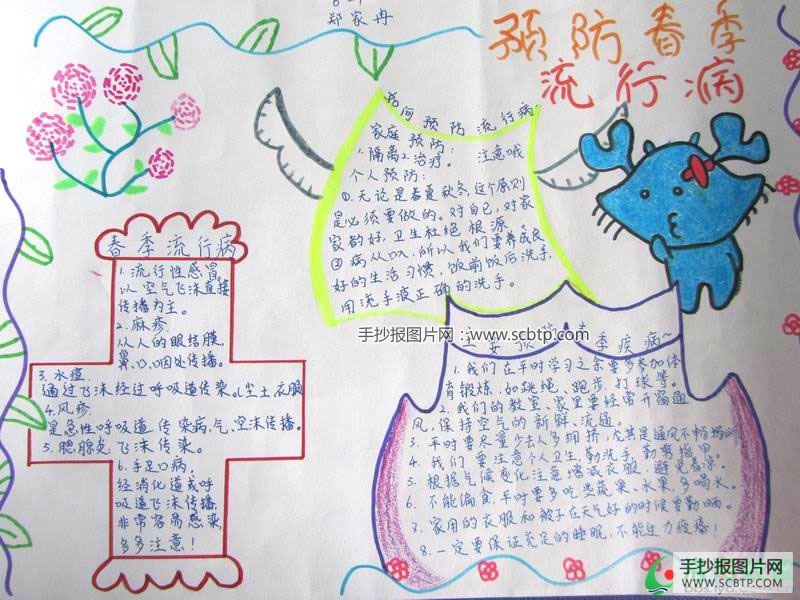 郑家冉
预防春季
流行病
如何预防流行病
家庭预防:
1.隔离2.治疗。 注意哦
个人预防:
①.无论是春夏秋冬,这个原则
是必须要做的。对自己,对家
家都好,卫生杜绝根源。
②病从口入,所以我们要养成良
好的生活习惯,饭前饭后洗手,
用洗手液正确的洗手。
春季流行病
1.流行性感冒。
以空气飞沫直接
传播为主。
2.麻疹.
从人的眼结膜,
鼻、口、咽处传播。
3.水痘.
通过飞沫经过呼吸道传染。(尘土衣服
4.风疹.
是急性呼吸道传染病,气,空沫传播。
5.腮腺炎.飞沫传染。
6.手足口病.
经消化道或呼
吸道飞沫传播,
非常容易感染,
多多注意!
手抄报图片网:www.scbtp.com
季疾病~
1.我们在平时学习之余要多参加体
育锻炼,如跳绳、跑步、打球等。
2.我们的教室、家里要经常开窗通
风,保持空气的新鲜、流通。
3.平时要尽量少去人多拥挤,尤其是通风不畅场所
4.我们要注意个人卫生,勤洗手,勤剪指甲。
5.根据气候变化注意增减衣服,避免着凉。
6.不能偏食,平时要多吃些蔬果、水果,多喝水。
7.家用的衣服和被子在天气好的时候要勤晒。
8.一定要保证充足的睡眠,不能过力疲惫!
手抄报图片网
WWW.SCBTP.COM